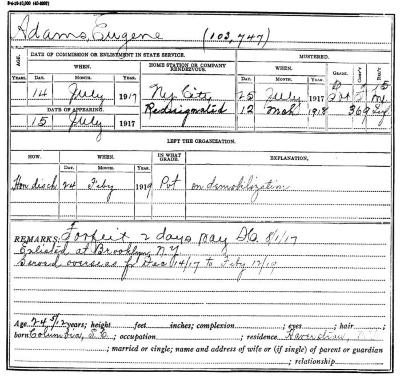 Adams, Eugene (103,747)
AGE.
DATE OF COMMISSION OR ENLISTMENT IN STATE SERVICE.
MUSTERED.
GRADE.
COM'Y
REG'T
WHEN.
HOME STATION OR COMPANY RENDEZVOUS.
WHEN.
YEARS. DAY. MONTH. YEAR. DAY. MONTH. YEAR.
14 July 1917 Ny City 25 July 1917 15
DATE OF APPEARING. Redesignated 12 Mch 1918 369
15 July 1917
LEFT THE ORGANIZATION.
HOW. WHEN. IN WHAT GRADE. EXPLANATION.
DAY. MONTH. YEAR.
Hon disch 24 Feby 1919 Pvt on demobilization
REMARKS: Forfeit 2 days pay DC 8/1/17
Enlisted at Brooklyn N.Y.
Served overseas fr Dec 14/17 to Feby 12/19
Age 24 5/12 years; height feet inches; complexion ; eyes ; hair ;
born Columbia, S.C. ; occupation ; residence Haverstraw
; married or single; name and address of wife or (if single) of parent or guardian
; relationship